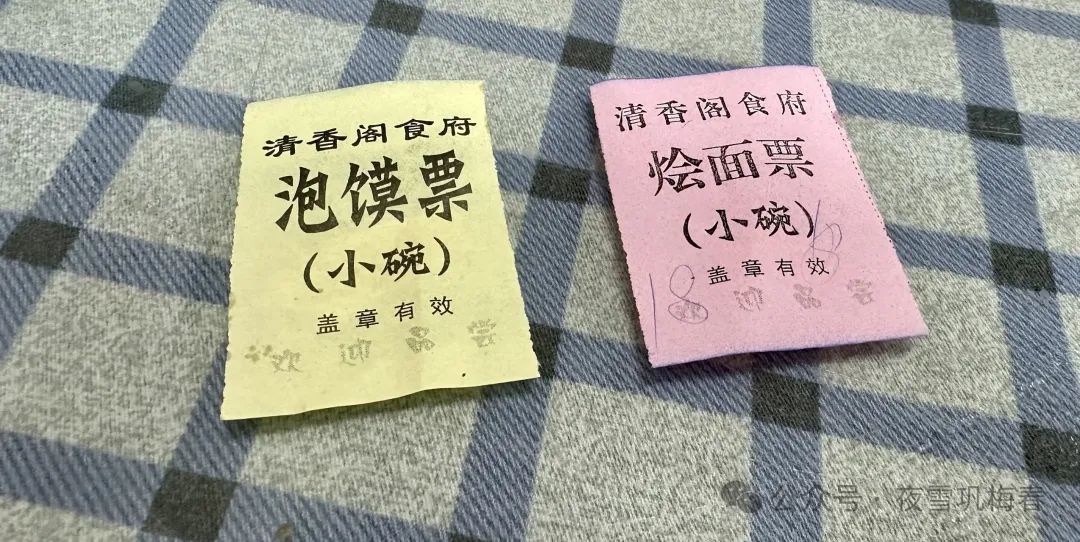 清香阁食府
泡馍票
(小碗)
盖章有效
欢迎品尝
清香阁食府
烩面票
(小碗)
18
盖章有效
欢迎品尝
公众号·夜雪巩梅春